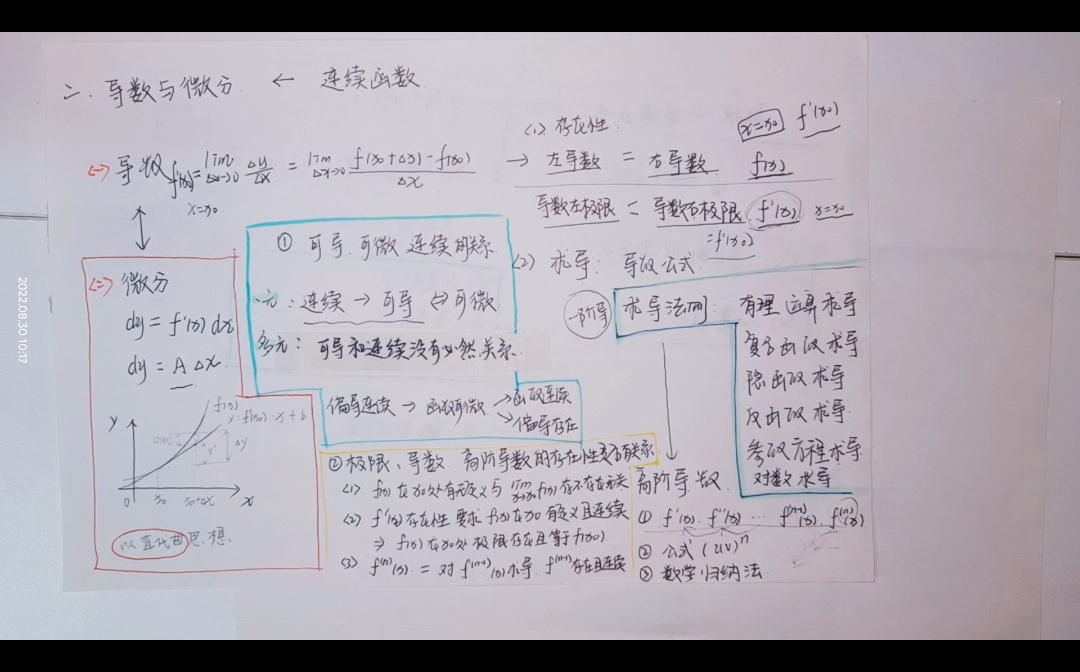 二. 导数与微分 ← 连续函数
(一) 导数 f'(x₀) = lim Δx→0 Δy/Δx = lim Δx→0 (f(x₀+Δx)-f(x₀))/Δx
x=x₀
(1) 存在性.
x=x₀ f'(x₀)
→ 左导数 = 右导数 f(x)
导数左极限 = 导数右极限 f'(x) x=x₀
=f'(x₀)
(二) 微分
dy = f'(x) dx
dy = A Δx
y
f(x)
y=f'(x₀)·x+b
Δy
0 x₀ x₀+Δx x
以直代曲思想.
① 可导.可微 连续的关系
一元: 连续 → 可导 ⇔ 可微
多元: 可导和连续没有必然关系.
偏导连续 → 函数可微 → 函数连续
↘ 偏导存在
② 极限、导数. 高阶导数的存在性是否有关系
(1) f(x)在x₀处有无定义与 lim x→x₀ f(x)存不存在无关
(2) f'(x)存在性 要求 f(x)在x₀有定义且连续
⇒ f(x)在x₀处极限存在且等于f(x₀)
(3) f⁽ⁿ⁾(x) = 对 f⁽ⁿ⁻¹⁾(x)求导. f⁽ⁿ⁻¹⁾存在且连续
(2) 求导: 导数公式
一阶导 求导法则: 有理运算求导
复合函数求导
隐函数求导
反函数求导
参数方程求导
对数求导
高阶导数.
① f'(x). f''(x) ... f⁽ⁿ⁻¹⁾(x). f⁽ⁿ⁾(x)
② 公式 (uv)ⁿ
③ 数学归纳法
2022.08.30 10:17